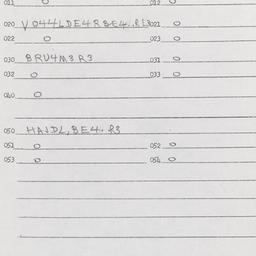 011 0 012 0
020 021 0
022 0 023 0
030 BRU4M3 R3 031 0
032 0 033 0
040 0
050 HAJDL, BE4. R3
051 0 052 0
053 0 054 0